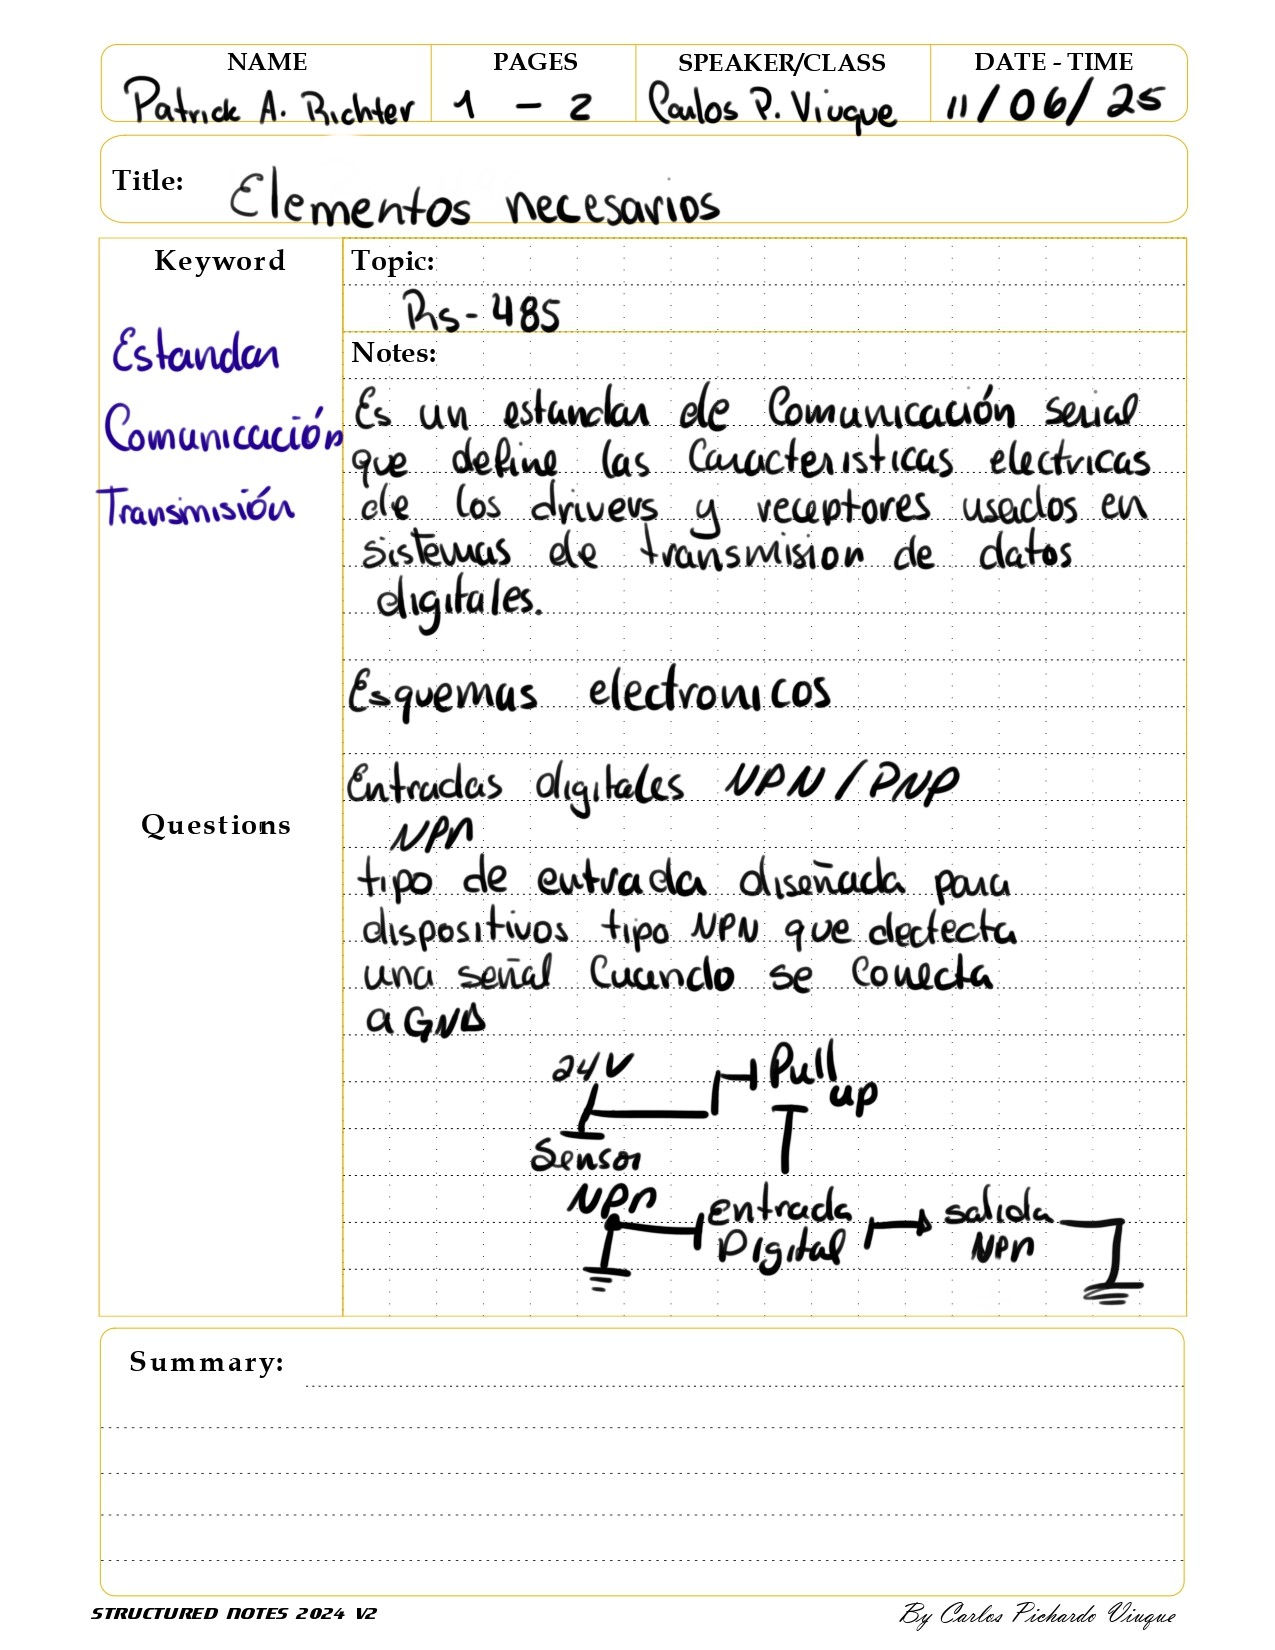 NAME PAGES SPEAKER/CLASS DATE - TIME
Patrick A. Richter 1 - 2 Carlos P. Viuque 11/06/25
Title: Elementos necesarios
Keyword
Estandar
Comunicación
Transmisión
Questions
Topic:
Rs-485
Notes:
Es un estandar de Comunicación serial
que define las Caracteristicas electricas
de los drivers y receptores usados en
sistemas de transmision de datos
digitales.
Esquemas electronicos
Entradas digitales NPN / PNP
NPN
tipo de entrada diseñada para
dispositivos tipo NPN que dectecta
una señal Cuando se Conecta
a GND
24V Pull
up
Sensor
NPN entrada salida
Digital NPN
Summary:
STRUCTURED NOTES 2024 V2 By Carlos Pichardo Viuque